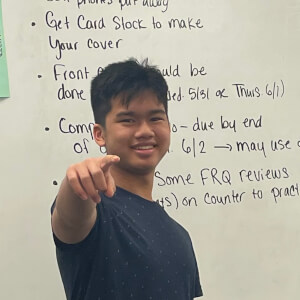 phones put away
Get Card Stock to make
your cover
Front uld be
done ed. 5/31 or Thurs. 6/1)
Com o - due by end
of 6/2 → may use
Some FRQ reviews
ts) on counter to pract